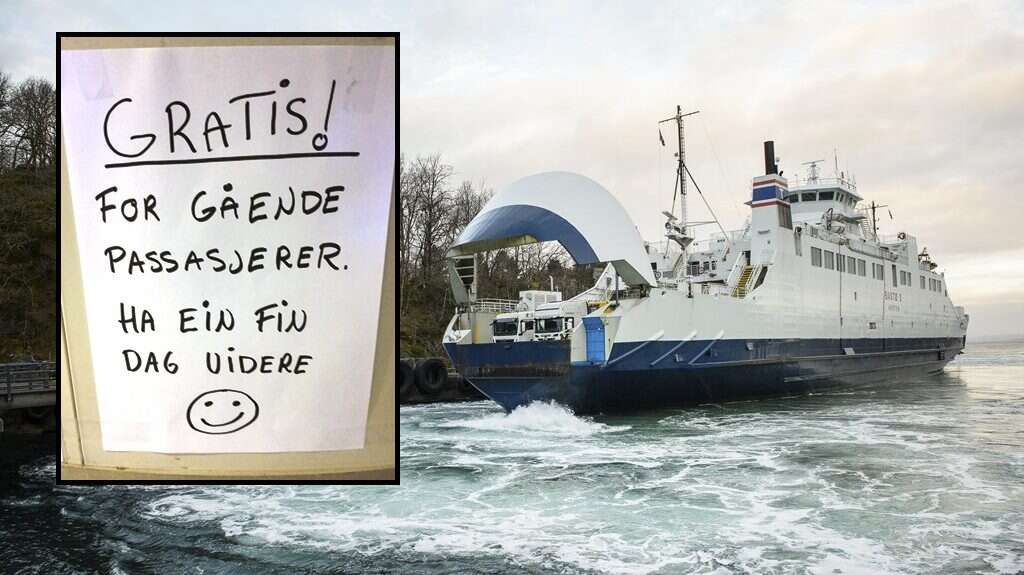 GRATIS!
FOR GÅENDE
PASSASJERER.
HA EIN FIN
DAG VIDERE